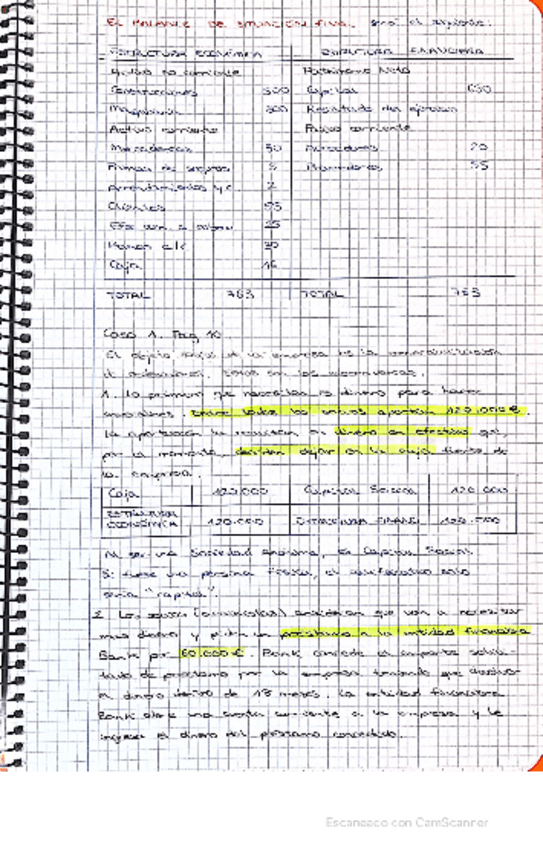 EL BALANCE DE SITUACIÓN FINAL será el siguiente:
ESTRUCTURA ECONÓMICA ESTRUCTURA FINANCIERA
Activo no corriente Patrimonio Neto
Construcciones 500 Capital 650
Maquinaria 200 Resultado del ejercicio
Activo corriente Pasivo corriente
Mercaderías 50 Acreedores 20
Primas de seguros 5 Proveedores 55
2
Clientes 95
25
Bancos c/c 30
Caja 16
TOTAL 763 TOTAL 763
Caso 1. Pag 10
El objeto social de la empresa es la comercialización
de
1. Lo primero que necesitan es dinero para hacer
inversiones. Entre todos los socios aportan 120.000€.
La aportación la realizan en dinero en efectivo que,
por la momento, deciden dejar en la caja fuerte de
la empresa.
Caja 120.000 Capital Social 120.000
ESTRUCTURA
ECONÓMICA 120.000 ESTRUCTURA FINANC. 120.000
Al ser una Sociedad Anónima, es Capital Social.
Si fuese una persona física, el
sería "capital".
2. Los socios (accionistas) que van a necesitar
más dinero y piden un préstamo a la entidad financiera
Bank por 60.000€. Bank concede el importe solici-
tado de préstamo por la empresa teniendo que devolver
el dinero dentro de 18 meses. La entidad financiera
Bank abre una cuenta corriente a la empresa y le
ingresa el dinero del préstamo concedido.
Escaneado con CamScanner